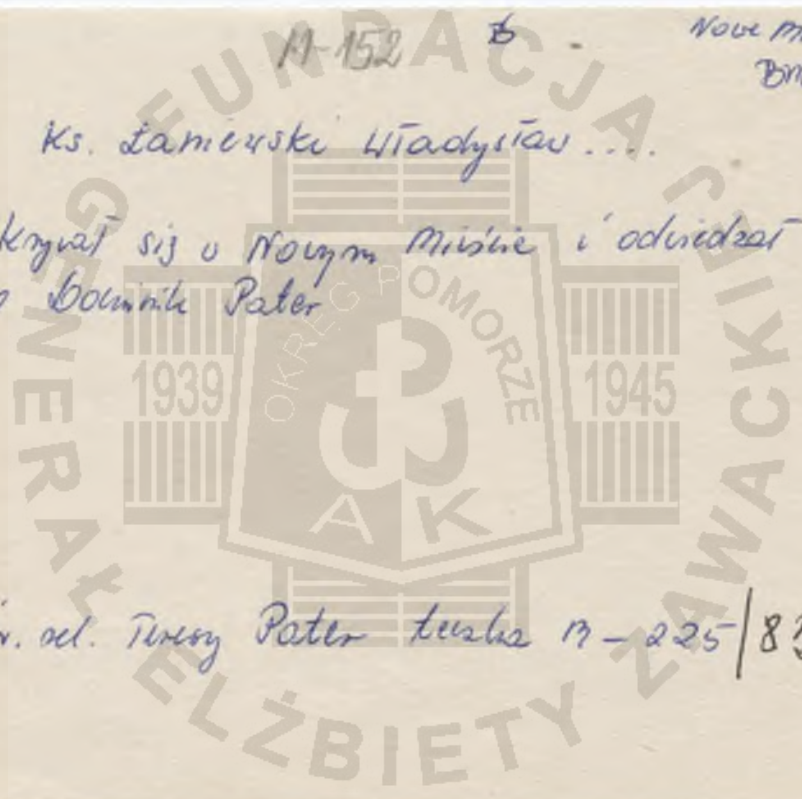 M-152
B
Nowe Mi
Bro
Ks. Łaniewski Władysław....
krywał się w Nowym Mieście i odwiedzał
Dominik Pater
r. rel. Teresy Pater teczka M-225/83
FUNDACJA GENERAŁ ELŻBIETY ZAWACKIEJ
OKRĘG POMORZE
1939
1945
AK